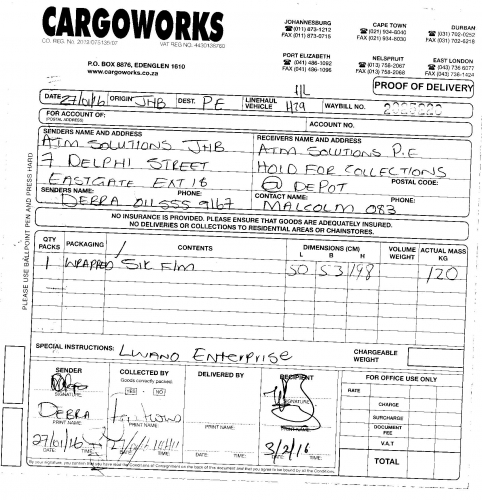 CARGOWORKS
P.O. BOX 8876, EDENGLEN 1610
www.cargoworks.co.za
JOHANNESBURG
☎ (011) 873-1212
FAX (011) 873-0715
CAPE TOWN
☎ (021) 934-8040
FAX (021) 934-8030
DURBAN
☎ (031) 702-0252
FAX (031) 702-0218
PORT ELIZABETH
☎ (041) 486-1092
FAX (041) 486-1096
NELSPRUIT
☎ (013) 758-2067
FAX (013) 758-2068
EAST LONDON
☎ (043) 736 6077
FAX (043) 736-1424
PROOF OF DELIVERY
DATE 27/01/16 ORIGIN JHB DEST. P.E LINEHAUL VEHICLE H39 WAYBILL NO.
FOR ACCOUNT OF:
(POSTAL ADDRESS)
ACCOUNT NO.
SENDERS NAME AND ADDRESS
ATM SOLUTIONS JHB
7 DELPHI STREET
EASTGATE EXT 18
SENDERS NAME: PHONE:
DEBRA 011 555 9167
RECEIVERS NAME AND ADDRESS
ATM SOLUTIONS P.E
HOLD FOR COLLECTIONS
@ DEPOT POSTAL CODE:
CONTACT NAME: PHONE:
MALCOLM 083
NO INSURANCE IS PROVIDED. PLEASE ENSURE THAT GOODS ARE ADEQUATELY INSURED.
NO DELIVERIES OR COLLECTIONS TO RESIDENTIAL AREAS OR CHAINSTORES.
PLEASE USE BALLPOINT PEN AND PRESS HARD
QTY PACKS PACKAGING CONTENTS DIMENSIONS (CM) L B H VOLUME WEIGHT ACTUAL MASS KG
1 WRAPPED 50 53 198 120
SPECIAL INSTRUCTIONS: Lwano Enterprise
CHARGEABLE WEIGHT
SENDER COLLECTED BY DELIVERED BY RECIPIENT
Goods correctly packed.
YES NO
SIGNATURE
DEBRA
PRINT NAME PRINT NAME PRINT NAME PRINT NAME
27/01/16 3/2/16
DATE: TIME: DATE: TIME: DATE: TIME:
By your signature, you confirm that you have read the Conditions of Consignment on the back of this document and that you agree to be bound by all the Conditions.
FOR OFFICE USE ONLY
RATE
CHARGE
SURCHARGE
DOCUMENT FEE
V.A.T
TOTAL